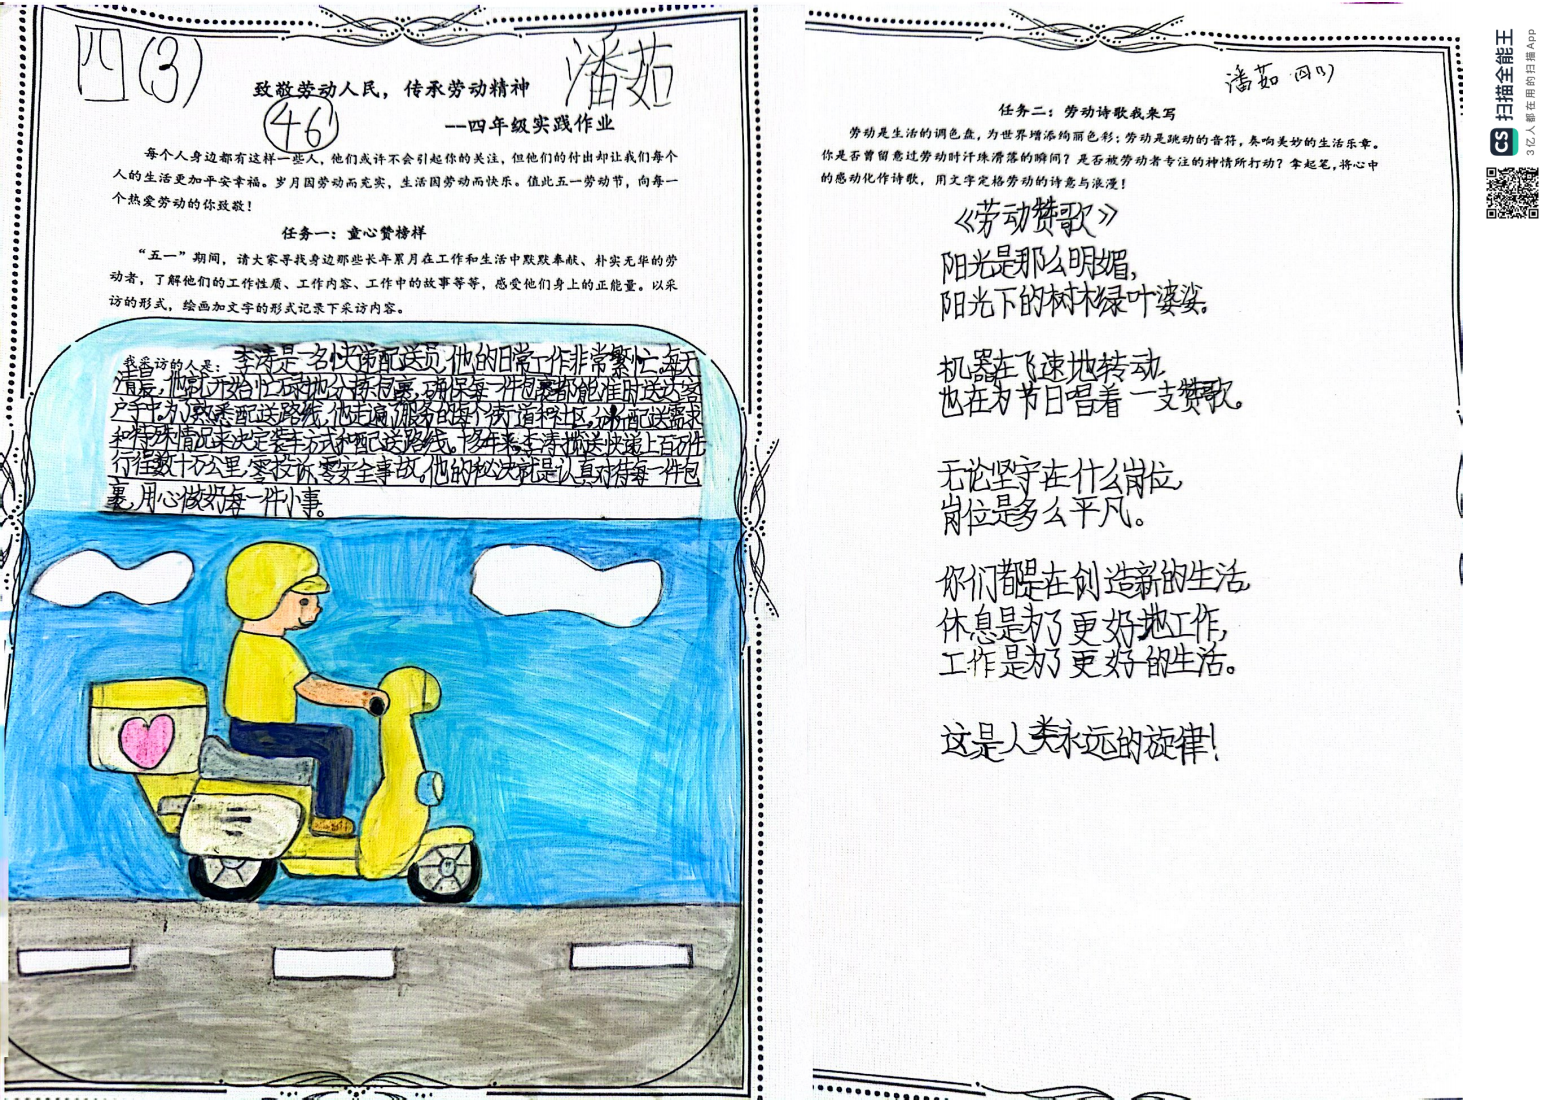 四(3)
潘茹
致敬劳动人民，传承劳动精神
46
--四年级实践作业
每个人身边都有这样一些人，他们或许不会引起你的关注，但他们的付出却让我们每个
人的生活更加平安幸福。岁月因劳动而充实，生活因劳动而快乐。值此五一劳动节，向每一
个热爱劳动的你致敬！
任务一：童心赞榜样
“五一”期间，请大家寻找身边那些长年累月在工作和生活中默默奉献、朴实无华的劳
动者，了解他们的工作性质、工作内容、工作中的故事等等，感受他们身上的正能量。以采
访的形式，绘画加文字的形式记录下采访内容。
我采访的人是：李涛是一名快递配送员，他的日常工作非常繁忙。每天
清晨，他就开始忙碌地分拣包裹，确保每一件包裹都能准时送达客
户手中。为了熟悉配送路线，他走遍了服务的每个街道和社区，分析配送需求
和特殊情况来决定装车方式和配送路线。十多年来，李涛揽送快递上百万件
行程数十万公里，零投诉，零安全事故。他的秘决就是认真对待每一件包
裹，用心做好每一件小事。
潘茹 四(3)
任务二：劳动诗歌我来写
劳动是生活的调色盘，为世界增添绚丽色彩；劳动是跳动的音符，奏响美妙的生活乐章。
你是否曾留意过劳动时汗珠滑落的瞬间？是否被劳动者专注的神情所打动？拿起笔，将心中
的感动化作诗歌，用文字定格劳动的诗意与浪漫！
《劳动赞歌》
阳光是那么明媚，
阳光下的树木绿叶婆娑。
机器在飞速地转动，
也在为节日唱着一支赞歌。
无论坚守在什么岗位，
岗位是多么平凡。
你们都是在创造新的生活，
休息是为了更好地工作，
工作是为了更好的生活。
这是人类永远的旋律！
CS 扫描全能王
3亿人都在用的扫描App